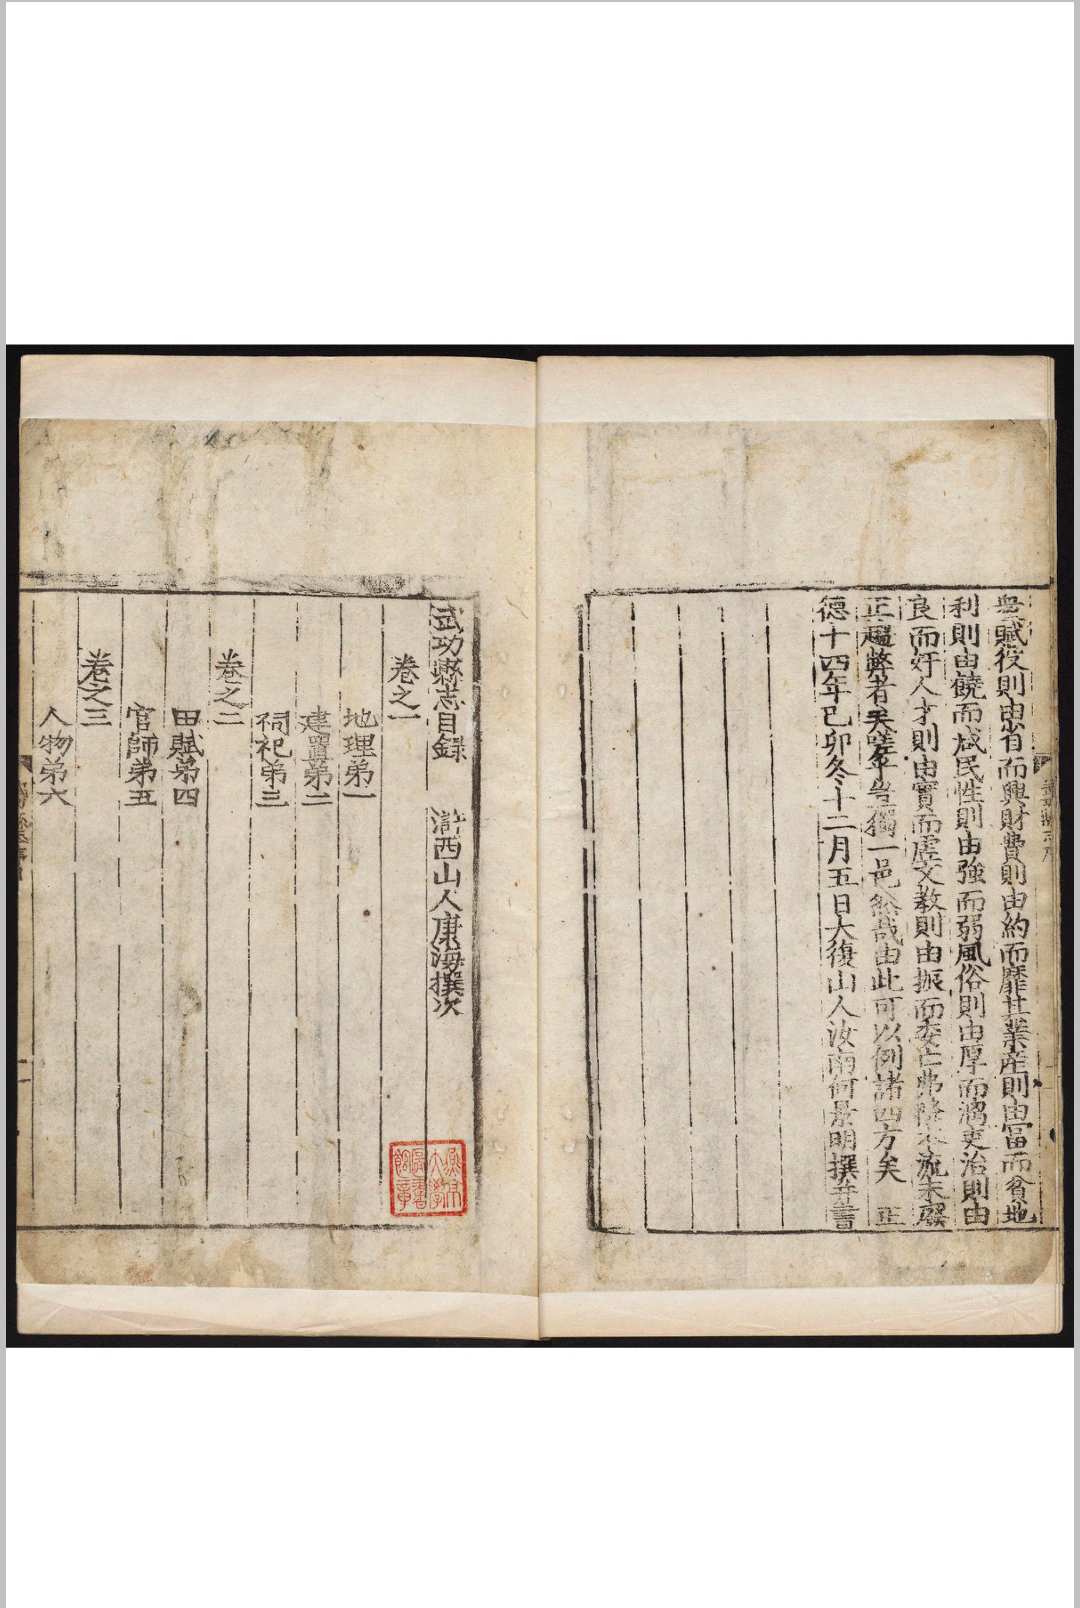 無賦役則由省而興財費則由約而靡其業産則由富而貧地
利則由饒而減民性則由強而弱風俗則由厚而澆吏治則由
良而奸人才則由實而虛文教則由振而委亡弗隆本流末廢
正趨弊者夫嗟乎豈獨一邑然哉由此可以例諸四方矣 正
德十四年己卯冬十二月五日大復山人汝南何景明撰并書
武功縣志目錄 滸西山人康海撰次
卷之一
地理第一
建置第二
祠祀第三
卷之二
田賦第四
官師第五
卷之三
人物第六
燕京大學圖書館章